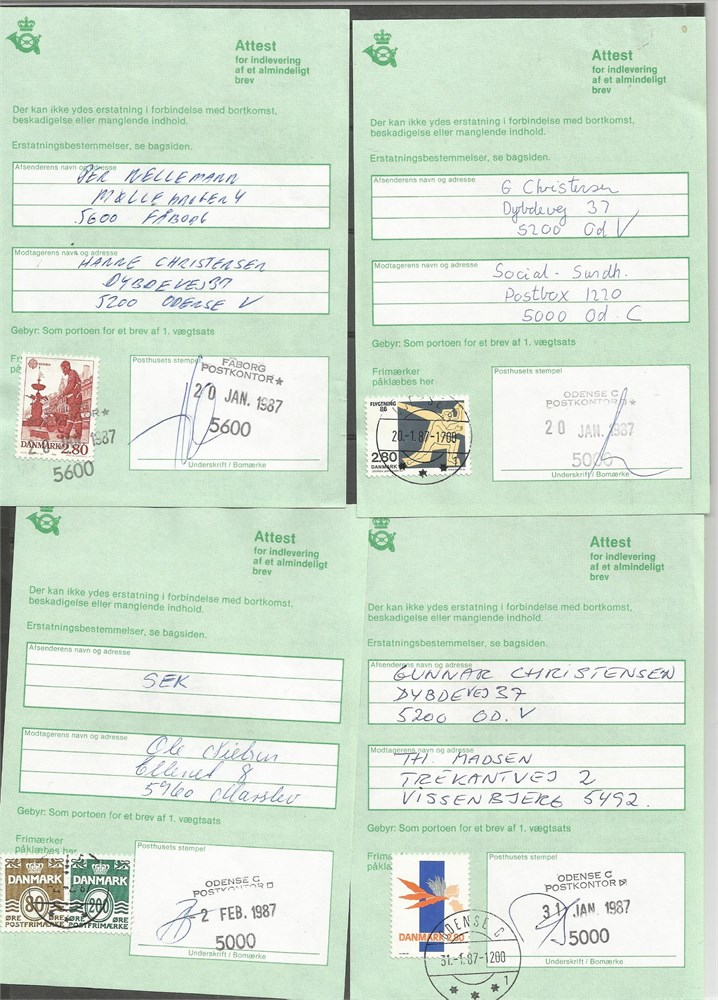 Attest
for indlevering
af et almindeligt
brev
Der kan ikke ydes erstatning i forbindelse med bortkomst,
beskadigelse eller manglende indhold.
Erstatningsbestemmelser, se bagsiden.
Afsenderens navn og adresse
PER NELLEMANN
5600 FÅBORG
Modtagerens navn og adresse
HANNE CHRISTENSEN
DYBDEVEJ 37
5200 ODENSE V
Gebyr: Som portoen for et brev af 1. vægtsats
Posthusets stempel
FÅBORG
POSTKONTOR
20 JAN. 1987
5600
DANMARK 2.80
20 JAN. 1987
5600
Underskrift / Bomærke
Attest
for indlevering
af et almindeligt
brev
Der kan ikke ydes erstatning i forbindelse med bortkomst,
beskadigelse eller manglende indhold.
Erstatningsbestemmelser, se bagsiden.
Afsenderens navn og adresse
G Christensen
Dybdevej 37
5200 Od V
Modtagerens navn og adresse
Social - Sundh.
Postbox 1220
5000 Od. C
Gebyr: Som portoen for et brev af 1. vægtsats
Frimærker
påklæbes her
Posthusets stempel
FLYGTNING
86
20.-1.87-1700
2.80
DANMARK
ODENSE C
POSTKONTOR
20 JAN. 1987
5000
Underskrift / Bomærke
Attest
for indlevering
af et almindeligt
brev
Der kan ikke ydes erstatning i forbindelse med bortkomst,
beskadigelse eller manglende indhold.
Erstatningsbestemmelser, se bagsiden.
Afsenderens navn og adresse
SEK
Modtagerens navn og adresse
Ole Nielsen
8
5960 Marslev
Gebyr: Som portoen for et brev af 1. vægtsats
Frimærker
påklæbes her
Posthusets stempel
DANMARK DANMARK
80 200
ØRE ØRE
POSTFRIMÆRKE POSTFRIMÆRKE
ODENSE C
POSTKONTOR
2 FEB. 1987
5000
Underskrift / Bomærke
Attest
for indlevering
af et almindeligt
brev
Der kan ikke ydes erstatning i forbindelse med bortkomst,
beskadigelse eller manglende indhold.
Erstatningsbestemmelser, se bagsiden.
Afsenderens navn og adresse
GUNNAR CHRISTENSEN
DYBDEVEJ 37
5200 OD. V
Modtagerens navn og adresse
TH. MADSEN
TREKANTVEJ 2
VISSENBJERG 5492.
Gebyr: Som portoen for et brev af 1. vægtsats
Posthusets stempel
DANMARK 2.80
ODENSE C
31.-1.87-1200
1
ODENSE C
POSTKONTOR
31 JAN. 1987
5000
Underskrift / Bomærke